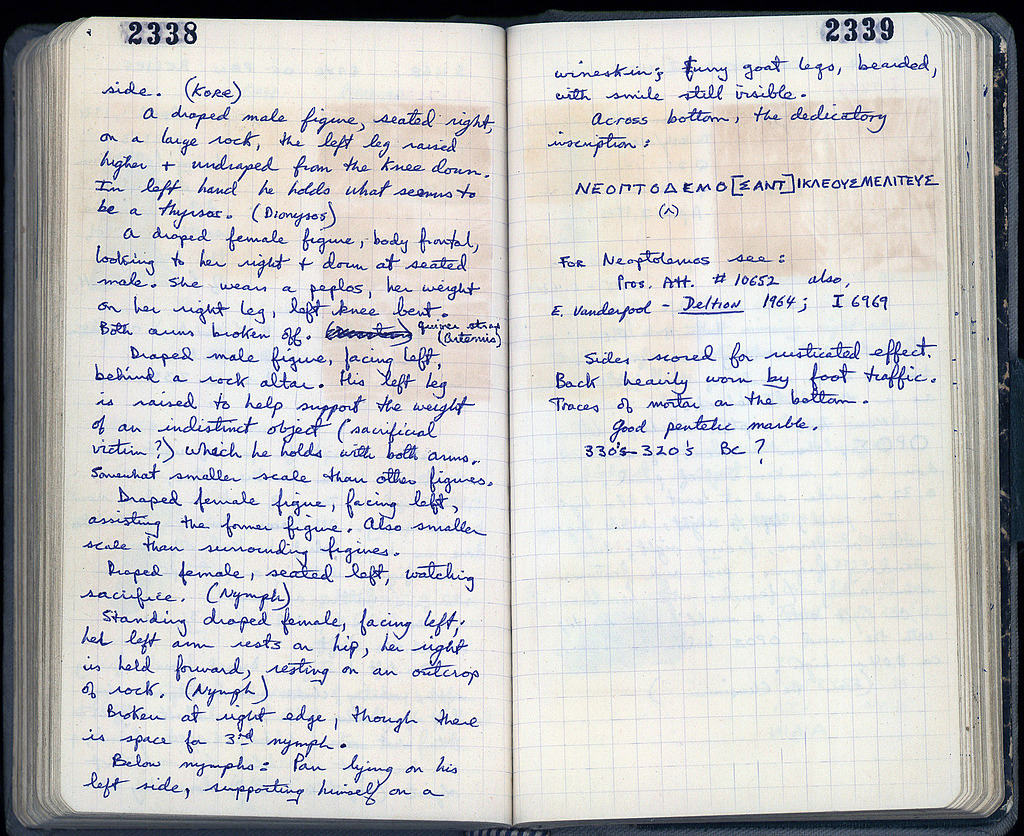 2338
side. (Kore)
A draped male figure, seated right,
on a large rock, the left leg raised
higher + undraped from the knee down.
In left hand he holds what seems to
be a thyrsos. (Dionysos)
A draped female figure, body frontal,
looking to her right + down at seated
male. She wears a peplos, her weight
on her right leg, left knee bent.
Both arms broken off. quiver strap
(Artemis)
Draped male figure, facing left,
behind a rock altar. His left leg
is raised to help support the weight
of an indistinct object (sacrificial
victim?) which he holds with both arms.
Somewhat smaller scale than other figures.
Draped female figure, facing left,
assisting the former figure. Also smaller
scale than surrounding figures.
Draped female, seated left, watching
sacrifice. (Nymph)
Standing draped female, facing left;
her left arm rests on hip, her right
is held forward, resting on an outcrop
of rock. (Nymph)
Broken at right edge, though there
is space for 3rd nymph.
Below nymphs: Pan lying on his
left side, supporting himself on a
2339
wineskin; furry goat legs, bearded,
with smile still visible.
Across bottom, the dedicatory
inscription:
ΝΕΟΠΤΟΔΕΜΟ[ΣΑΝΤ]ΙΚΛΕΟΥΣΜΕΛΙΤΕΥΣ
(Λ)
For Neoptolemos see:
Pros. Att. # 10652 also,
E. Vanderpool - Deltion 1964; I 6969
Sides scored for rusticated effect.
Back heavily worn by foot traffic.
Traces of mortar on the bottom.
Good pentelic marble.
330's-320's BC ?